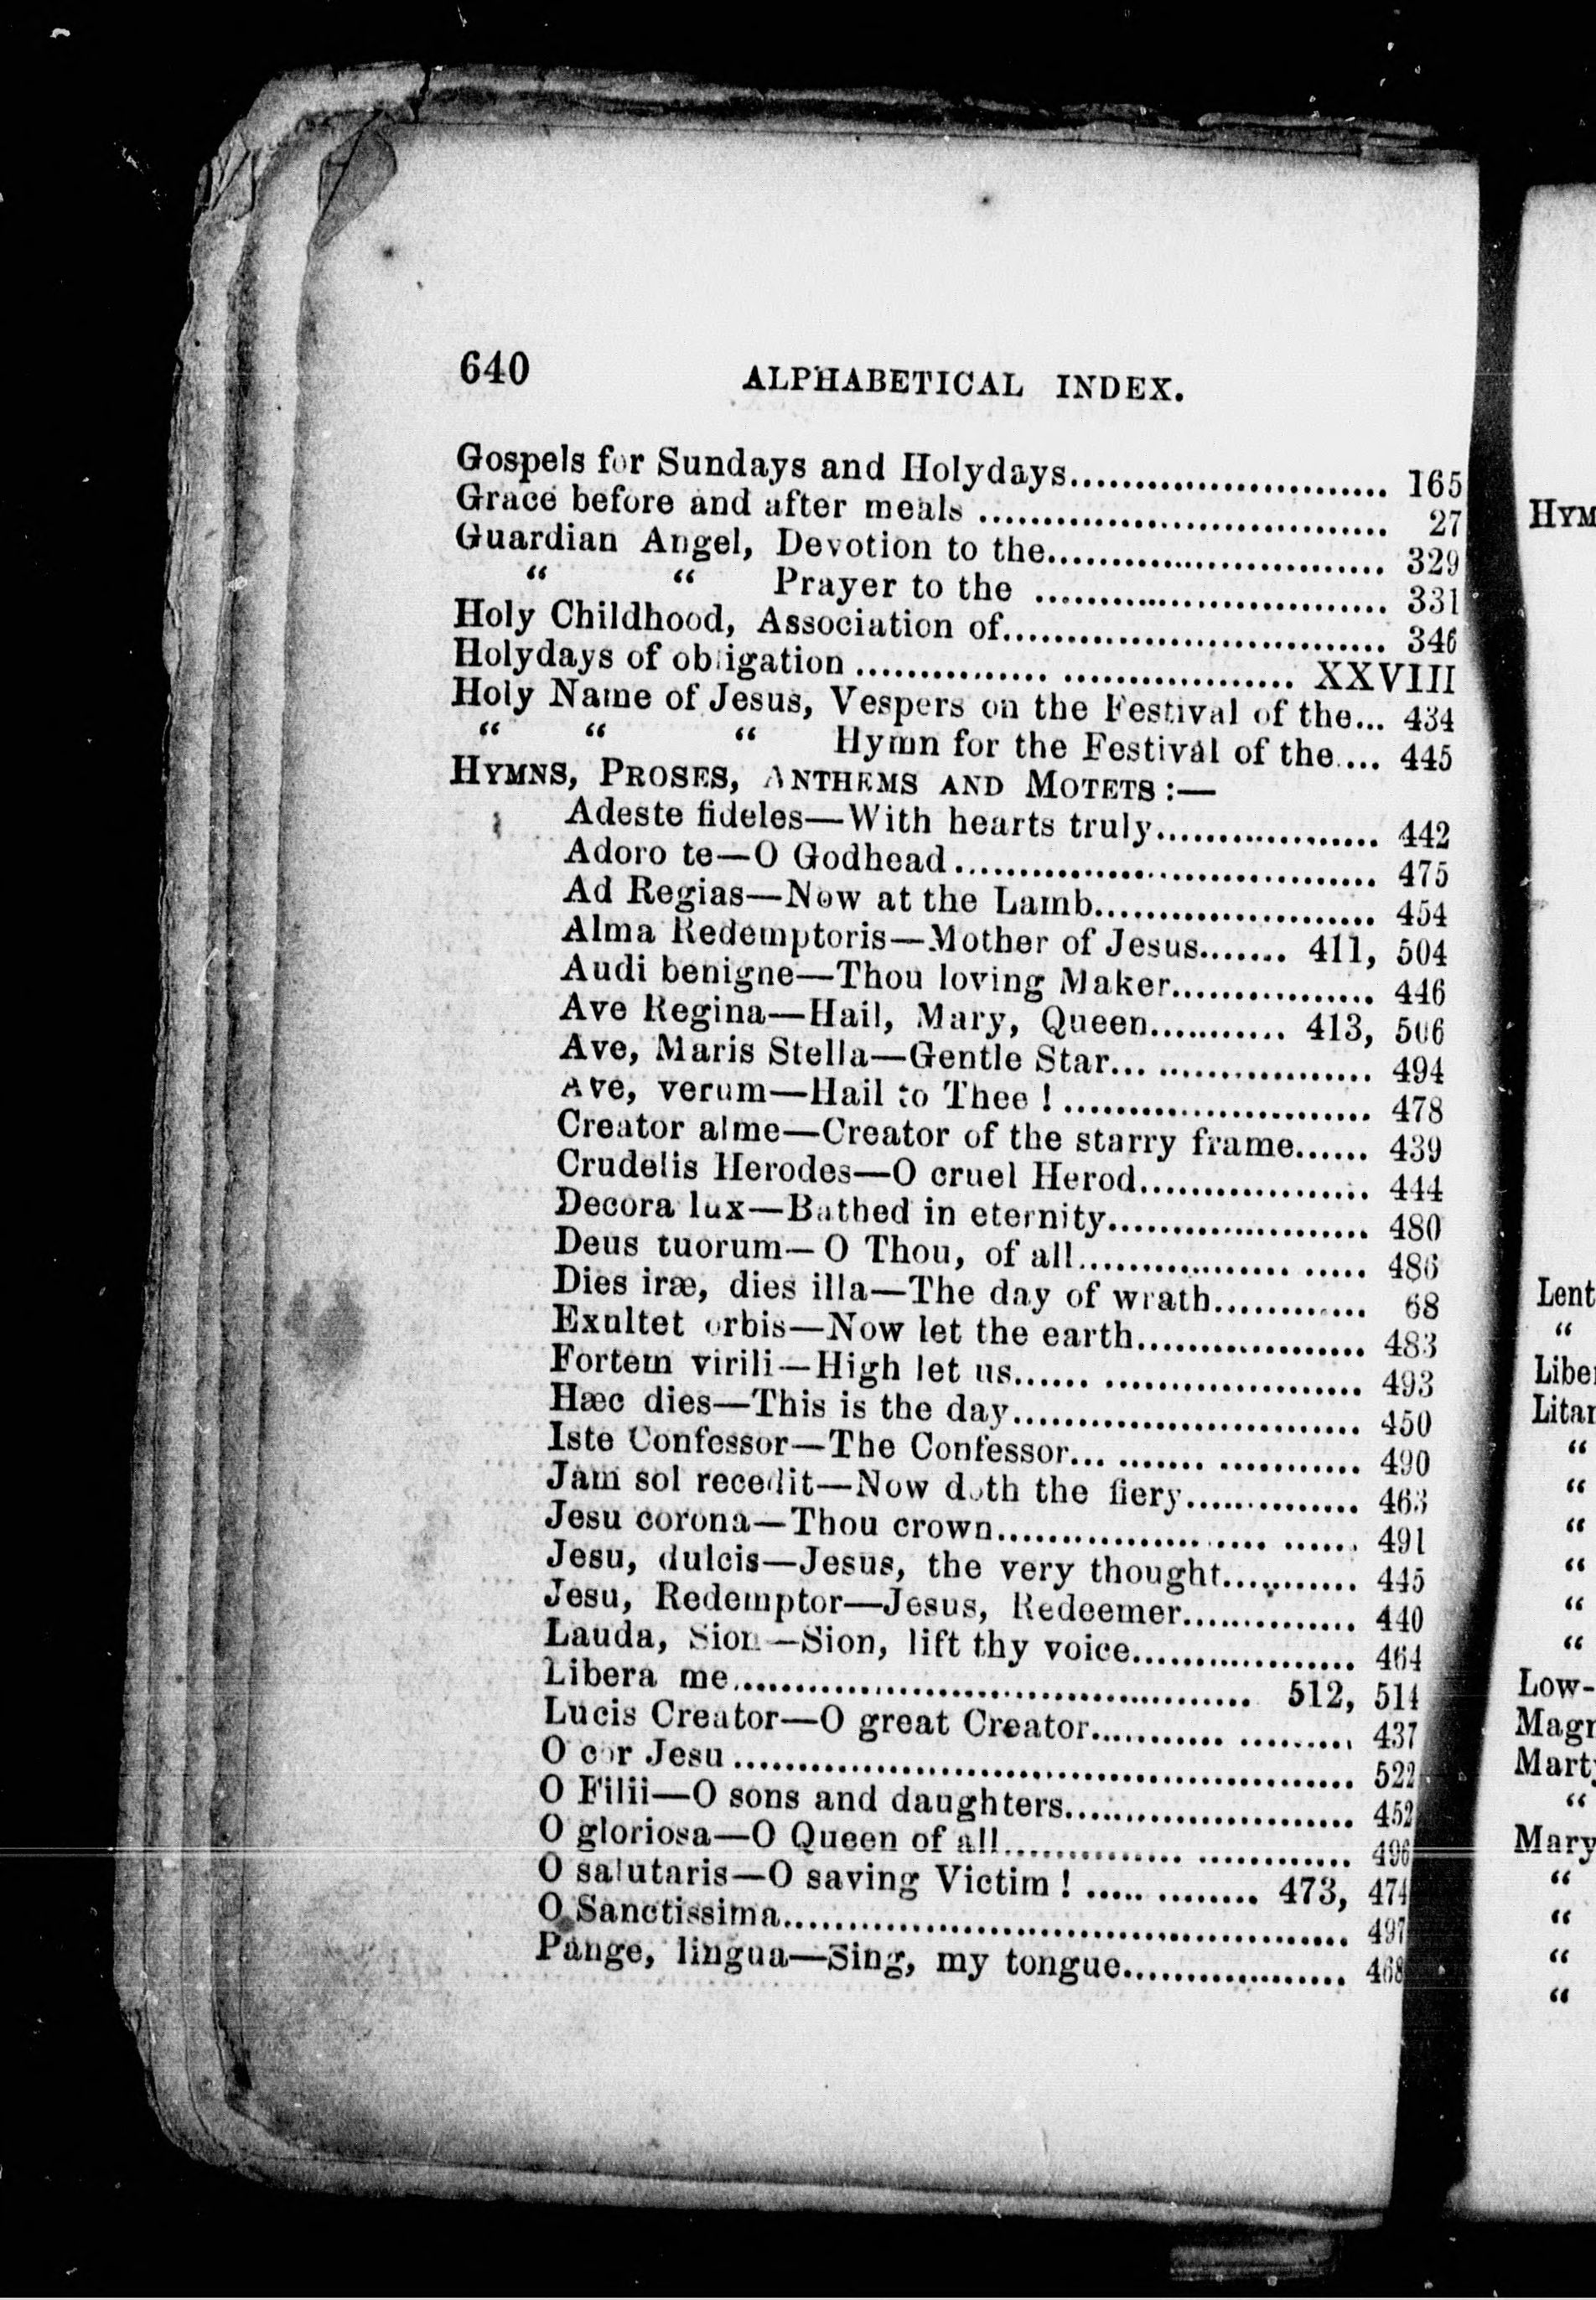 640 ALPHABETICAL INDEX.
Gospels for Sundays and Holydays......................... 165
Grace before and after meals ................................ 27
Guardian Angel, Devotion to the.......................... 329
“ “ Prayer to the ............................ 331
Holy Childhood, Association of.............................. 346
Holydays of obligation ............... .................. XXVIII
Holy Name of Jesus, Vespers on the Festival of the... 434
“ “ “ Hymn for the Festival of the.... 445
HYMNS, PROSES, ANTHEMS AND MOTETS :—
Adeste fideles—With hearts truly.................. 442
Adoro te—O Godhead................................. 475
Ad Regias—Now at the Lamb...................... 454
Alma Redemptoris—Mother of Jesus....... 411, 504
Audi benigne—Thou loving Maker................ 446
Ave Regina—Hail, Mary, Queen........... 413, 506
Ave, Maris Stella—Gentle Star... ................. 494
Ave, verum—Hail to Thee ! ........................ 478
Creator alme—Creator of the starry frame...... 439
Crudelis Herodes—O cruel Herod.................. 444
Decora lux—Bathed in eternity.................... 480
Deus tuorum—O Thou, of all................. ..... 486
Dies iræ, dies illa—The day of wrath............ 68
Exultet orbis—Now let the earth.................. 483
Fortem virili—High let us...... .................... 493
Hæc dies—This is the day........................... 450
Iste Confessor—The Confessor... ....... ........... 490
Jam sol recedit—Now doth the fiery.............. 463
Jesu corona—Thou crown..................... ...... 491
Jesu, dulcis—Jesus, the very thought........... 445
Jesu, Redemptor—Jesus, Redeemer.............. 440
Lauda, Sion—Sion, lift thy voice.................. 464
Libera me......................................... 512, 514
Lucis Creator—O great Creator........... ......... 437
O cor Jesu ................................................. 522
O Filii—O sons and daughters....................... 452
O gloriosa—O Queen of all.............. ............ 496
O salutaris—O saving Victim ! ..... ........ 473, 474
O Sanctissima............................................. 497
Pange, lingua—Sing, my tongue.................. 468
HYM
Lent
“
Liber
Litan
“
“
“
“
“
“
Low-
Magn
Marty
“
Mary
“
“
“
“